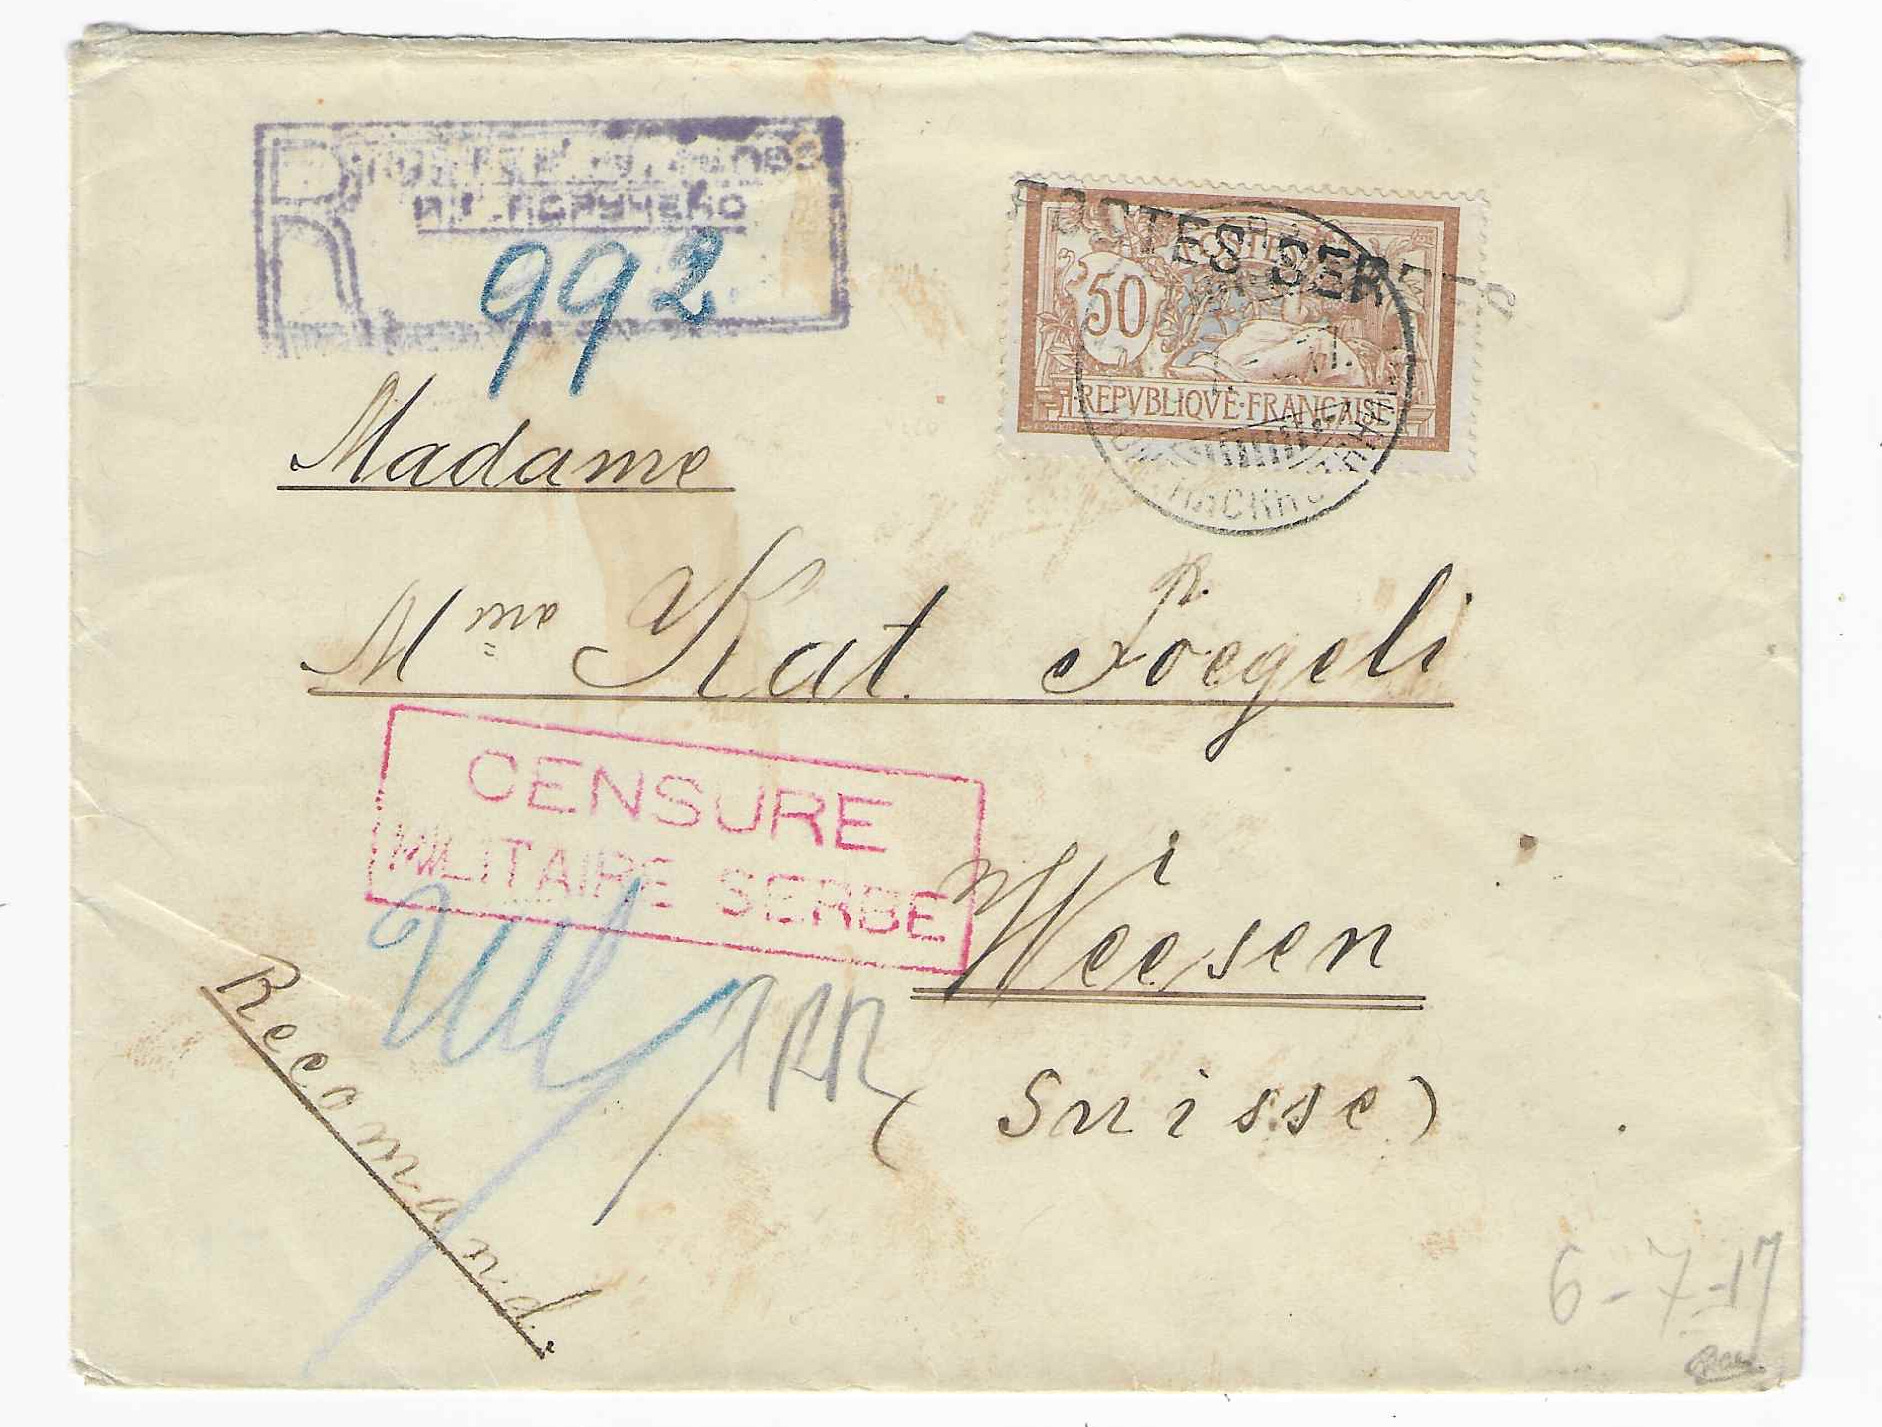 R
ПОРУЧЕНО
992
POSTES SERBES
50
REPVBLIQVE·FRANÇAISE
Madame
Mme Kat. Foegeli
CENSURE
MILITAIRE SERBE
Weesen
(Suisse)
Recomand.
6-7-17